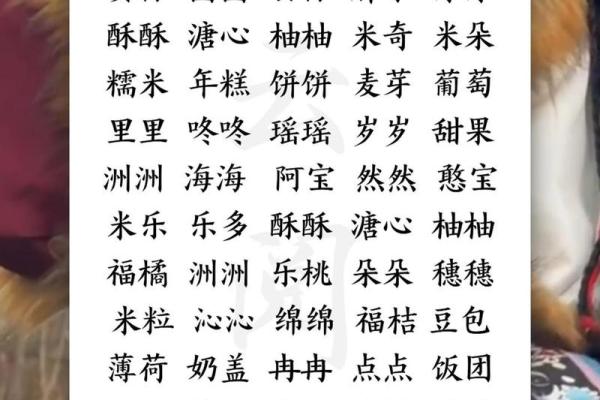 酥酥 溏心 柚柚 米奇 米朵
糯米 年糕 饼饼 麦芽 葡萄
里里 咚咚 瑶瑶 岁岁 甜果
洲洲 海海 阿宝 然然 憨宝
米乐 乐多 酥酥 溏心 柚柚
福橘 洲洲 乐桃 朵朵 穗穗
米粒 沁沁 绵绵 福桔 豆包
薄荷 奶盖 冉冉 点点 饭团